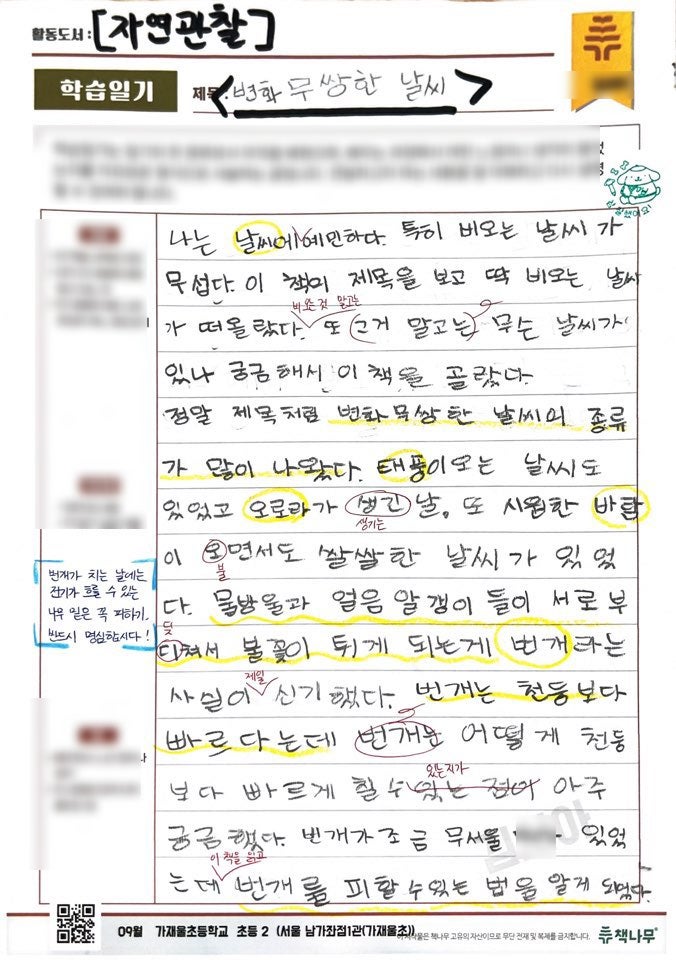 활동도서 : [자연관찰]
학습일기
제목 : <변화 무쌍한 날씨>
참 잘했어요!
나는 날씨에 예민하다. 특히 비오는 날씨가
무섭다. 이 책의 제목을 보고 딱 비오는 날씨
비오는것 말고는
가 떠올랐다. 또 (그거 말고는) 무슨 날씨가
있나 궁금해서 이 책을 골랐다.
정말 제목처럼 변화무쌍한 날씨의 종류
가 많이 나왔다. 태풍이오는 날씨도
있었고 오로라가 생긴 날, 또 시원한 바람
생기는
이 오면서도 쌀쌀한 날씨가 있었
불
번개가 치는 날에는
전기가 흐를 수 있는
나무 밑은 꼭 피하기.
반드시 명심합시다!
다. 물방울과 얼음 알갱이 들이 서로 부
딪
디쳐서 불꽃이 튀게 되는게 번개라는
제일
사실이 신기했다. 번개는 천둥보다
빠르다는데 번개는 어떻게 천둥
있는지가
보다 빠르게 칠수 있는 점이 아주
궁금했다. 번개가조금 무서울 있었
이 책을 읽고
는데 번개를 피할수있는 법을 알게 되었다.
09월 가재울초등학교 초등 2 (서울 남가좌점1관(가재울초))
이 저작물은 책나무 고유의 자산이므로 무단 전재 및 복제를 금지합니다.
책나무